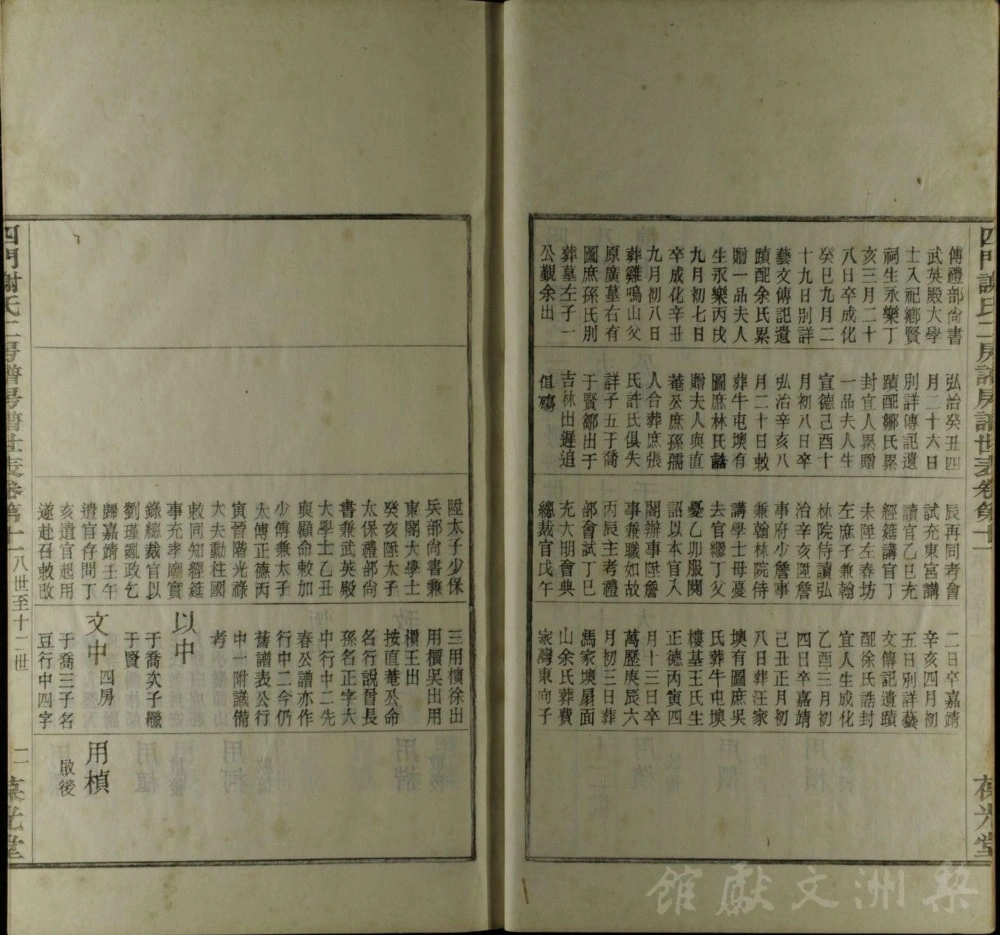 四門謝氏二房譜房譜世表卷第十一
葆光堂
傅禮部尚書
武英殿大學
士入祀鄉賢
祠生永樂丁
亥三月二十
八日卒成化
癸巳九月二
十九日別詳
藝文傳記遺
蹟配余氏累
贈一品夫人
生永樂丙戌
九月初七日
卒成化辛丑
九月初八日
葬雞鳴山父
原廣墓右有
圖庶孫氏別
葬墓左子一
公覲余出
弘治癸丑四
月二十六日
別詳傳記遺
蹟配鄒氏累
封宜人累贈
一品夫人生
宣德己酉十
月初八日卒
弘治辛亥八
月二十日敕
葬牛屯墺有
圖庶林氏誥
贈夫人與直
菴公庶孫孺
人合葬庶張
氏許氏俱失
詳子五于喬
于賢鄒出于
吉林出遲追
俱殤
辰再同考會
試充東宮講
讀官乙巳充
經筵講官丁
未陞左春坊
左庶子兼翰
林院侍讀弘
治辛亥陞詹
事府少詹事
兼翰林院侍
講學士母憂
去官繼丁父
憂乙卯服闋
詔以本官入
閣辦事陞詹
事兼職如故
丙辰主考禮
部會試丁巳
充大明會典
總裁官戊午
二日卒嘉靖
辛亥四月初
五日別詳藝
文傳記遺蹟
配徐氏誥封
宜人生成化
乙酉三月初
四日卒嘉靖
己丑正月初
八日葬汪家
墺有圖庶吳
氏葬牛屯墺
樓基王氏生
正德丙寅四
月十三日卒
萬歷庚辰六
月初三日葬
馮家墺扇面
山余氏葬費
家灣東向子
陞太子少保
兵部尚書兼
東閣大學士
癸亥陞太子
太保禮部尚
書兼武英殿
大學士乙丑
與顧命敕加
少傅兼太子
太傅正德丙
寅晉階光祿
大夫勳柱國
敕同知經筵
事充孝廟實
錄總裁官以
劉瑾亂政乞
歸嘉靖壬午
遣官存問丁
亥遣官起用
遂赴召敕改
三用櫝徐出
用檟吳出用
櫃王出
按直菴公命
名行說曾長
孫名正字大
中行中二先
春公譜亦作
行中二今仍
舊譜表公行
中一附識備
考
以中
于喬次子繼
于賢
文中 四房
于喬三子名
豆行中四字
用楨
啟後
四門謝氏二房譜房譜世表卷第十一 八世至十二世
二 葆光堂
梨洲文獻館